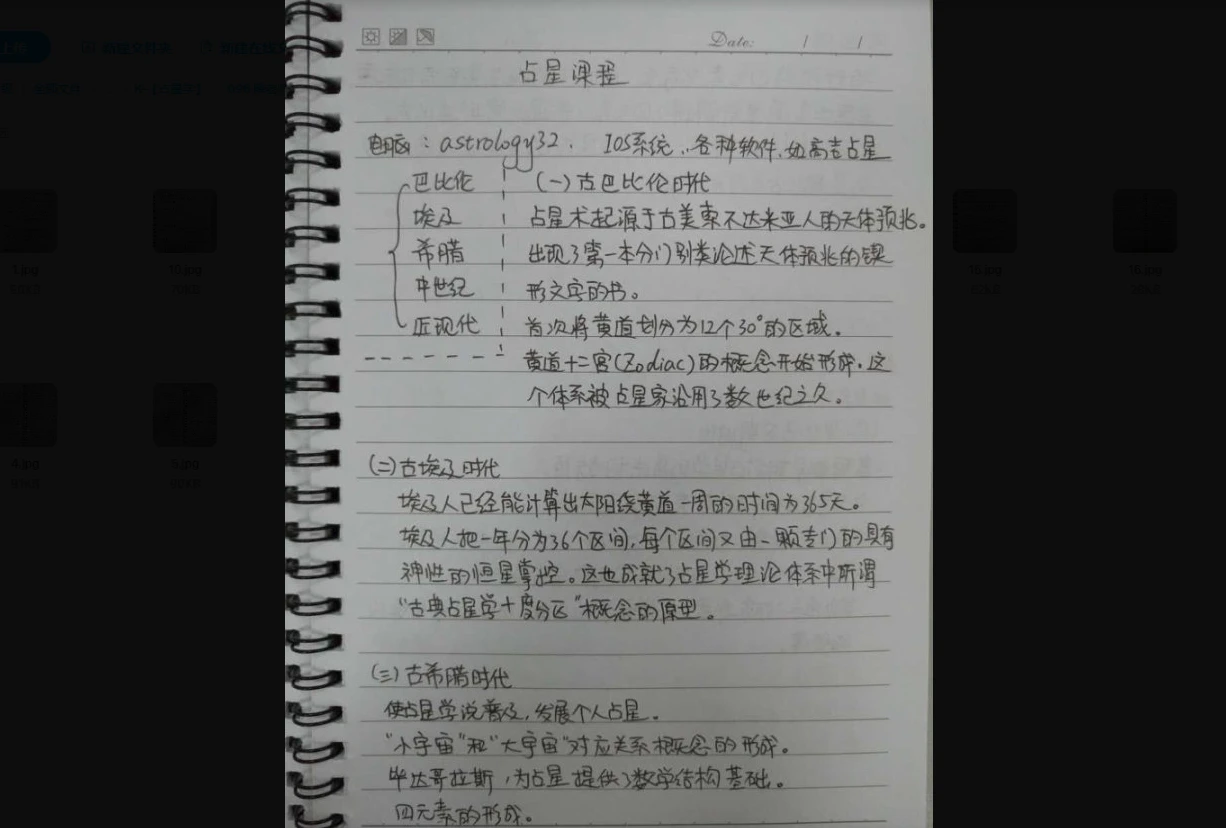 Date: / /
占星课程
电脑：astrology32. IOS系统：各种软件，如高吉占星
巴比伦
埃及
希腊
中世纪
近现代
（一）古巴比伦时代
占星术起源于古美索不达米亚人的天体预兆。
出现了第一本分门别类论述天体预兆的楔
形文字的书。
首次将黄道划分为12个30°的区域。
黄道十二宫(Zodiac)的概念开始形成，这
个体系被占星家沿用了数世纪之久。
（二）古埃及时代
埃及人已经能计算出太阳绕黄道一周的时间为365天。
埃及人把一年分为36个区间，每个区间又由一颗专门的具有
神性的恒星掌控。这也成就了占星学理论体系中所谓
“古典占星学十度分区”概念的原型。
（三）古希腊时代
使占星学说普及，发展个人占星。
“小宇宙”和“大宇宙”对应关系概念的形成。
毕达哥拉斯，为占星提供了数学结构基础。
四元素的形成。